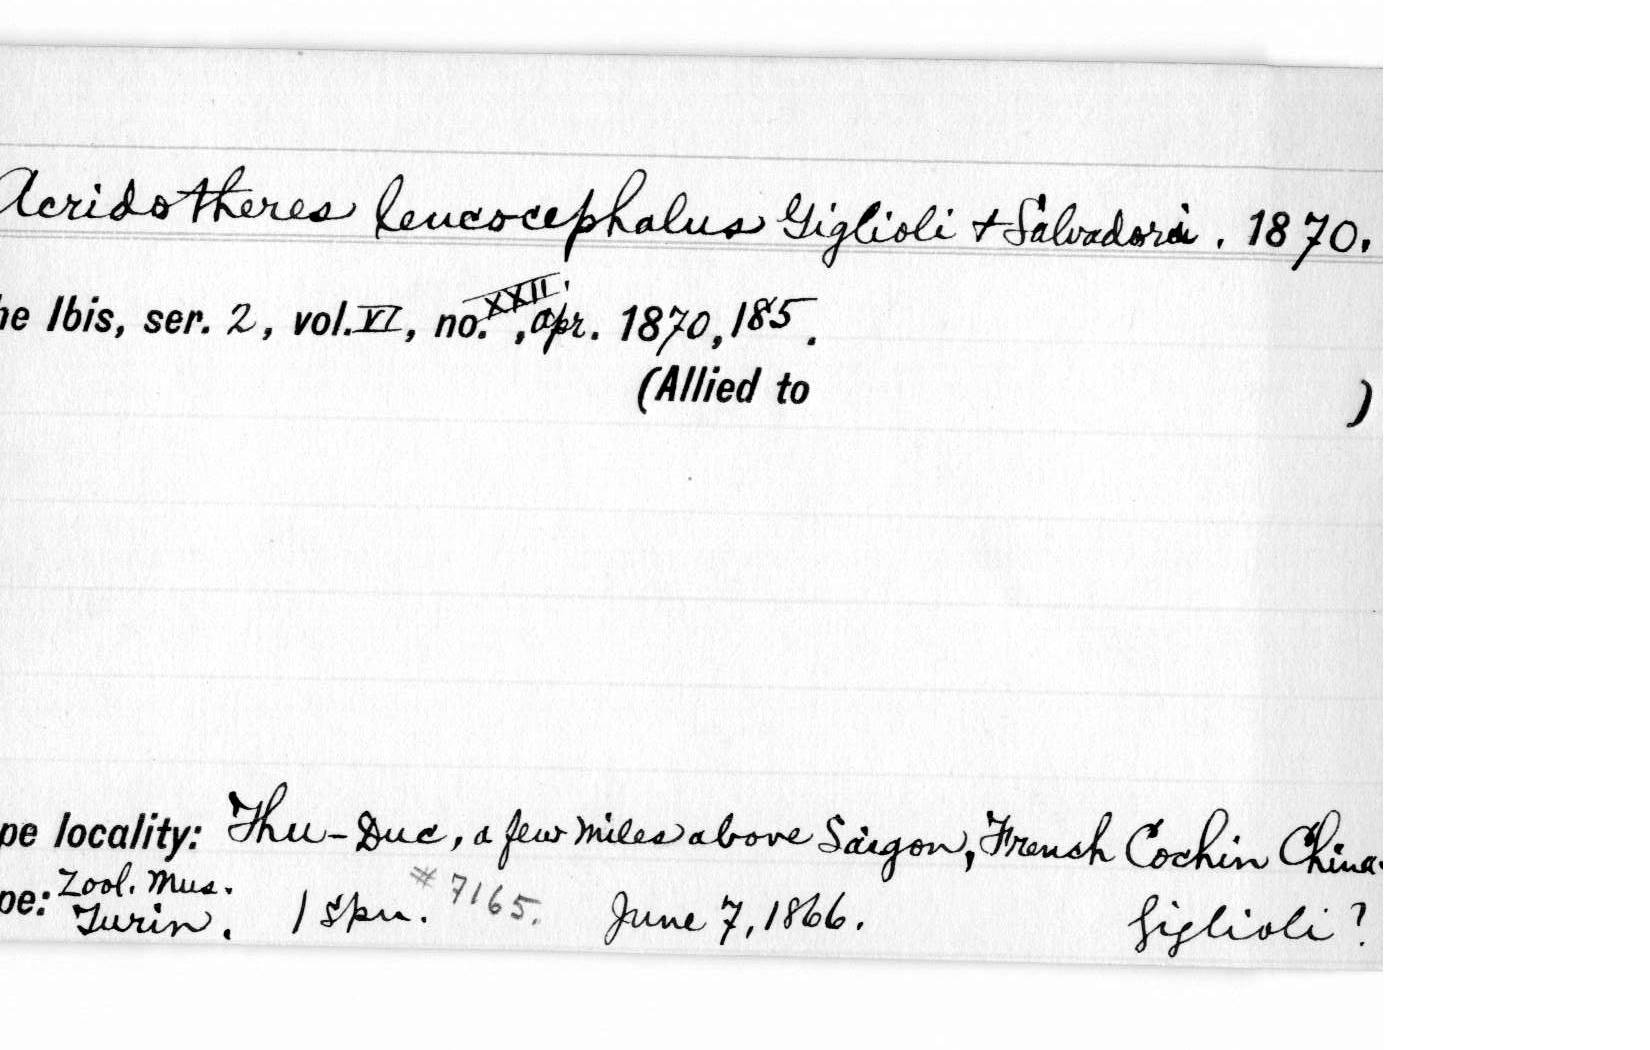 Acridotheres leucocephalus Giglioli + Salvadori. 1870.
he Ibis, ser. 2, vol. VI, no. XXII., Apr. 1870, 185.
(Allied to )
pe locality: Thu-Duc, a few miles above Saigon, French Cochin China.
pe: Zool. Mus. Turin. 1 spn. #7165. June 7, 1866. Giglioli?